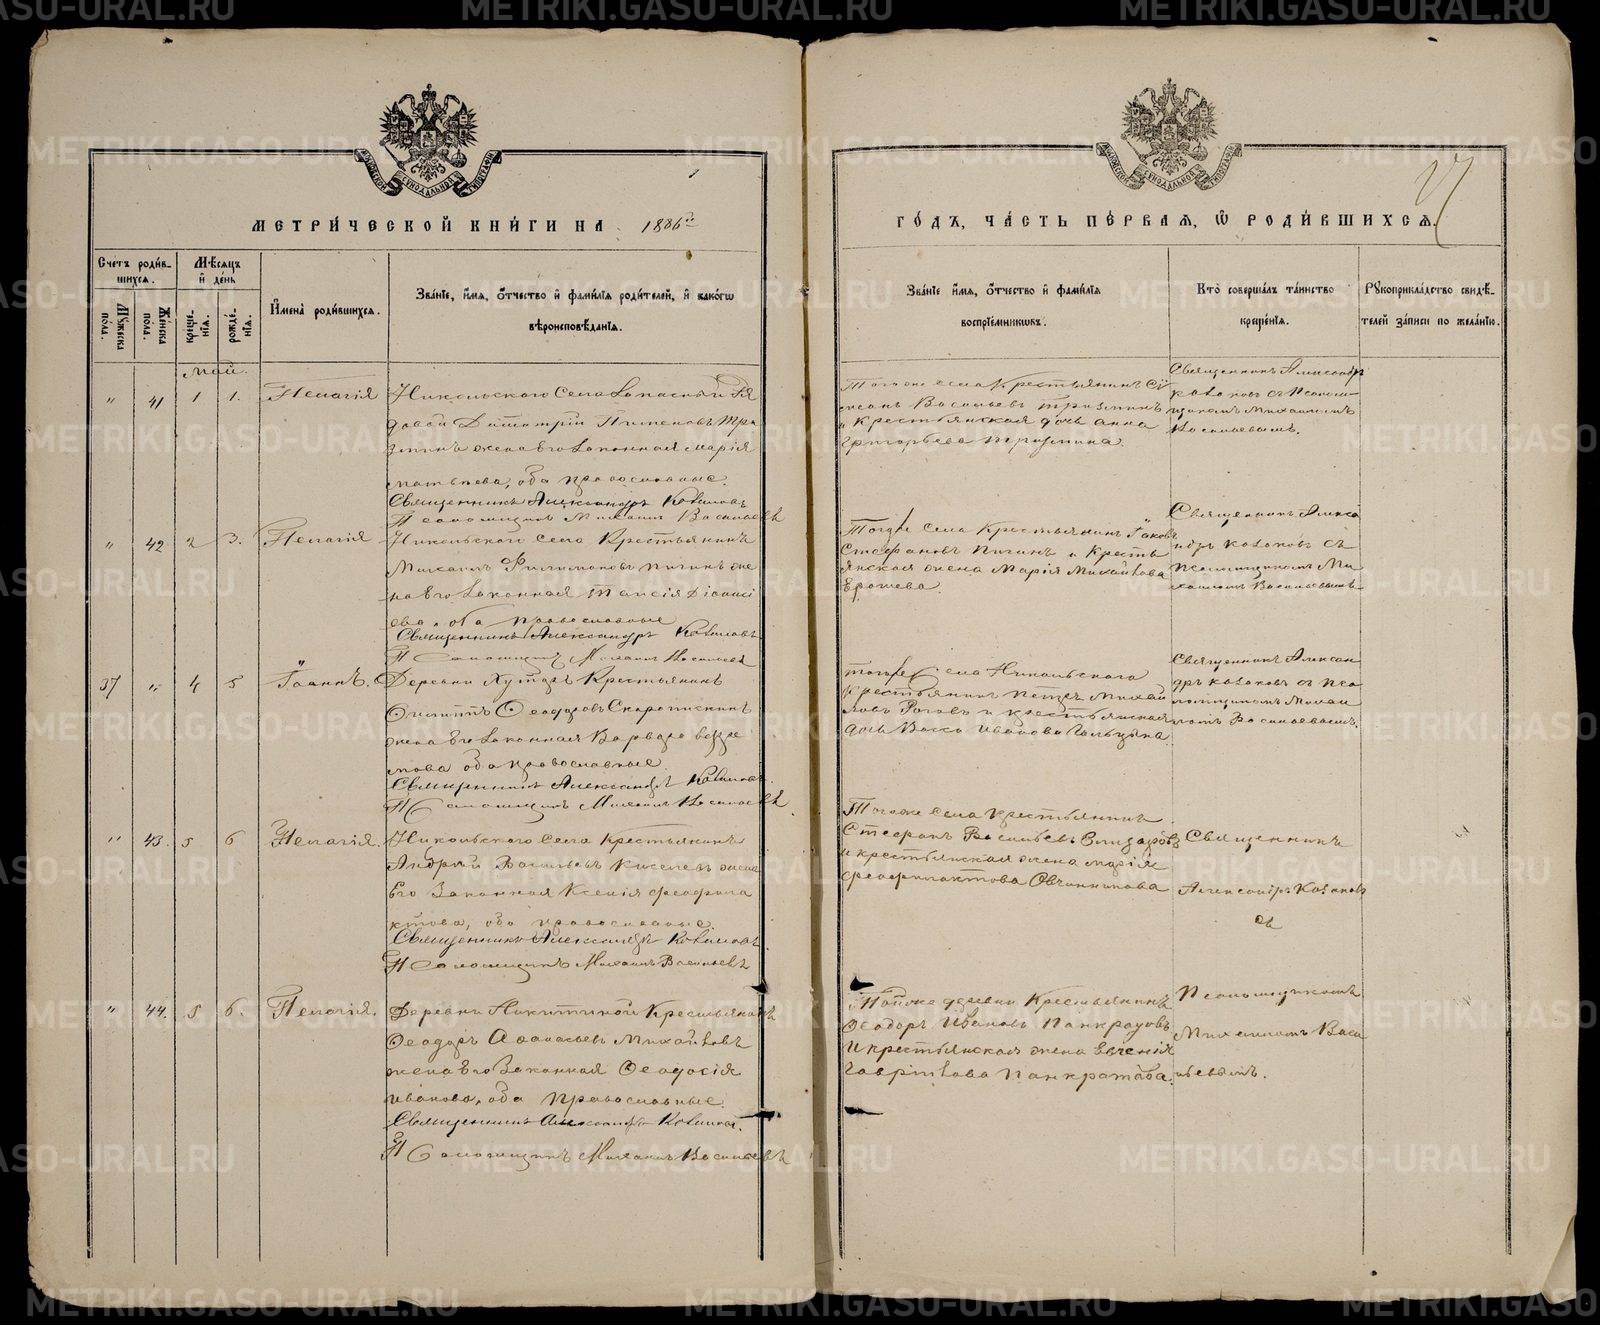 METRIKI.GASO-URAL.RU
МОСКОВСКОЙ СѴНОДАЛЬНОЙ ТИПОГРАФІИ
МЕТРИ́ЧЕСКОЙ КНИ́ГИ НА 1886
Сче́тъ роди́в-
шихся.
Мѣ́сяцъ
и҆ де́нь
Му́жеска
по́ла.
Же́нска
по́ла.
креще-
нїя.
рожде́-
нїя.
И҆мена̀ роди́вшихся.
Зва́нїе, и҆́мя, ѻ҆́тчество и҆ фами́лїя роди́телей, и҆ како́гѡ
вѣроисповѣ́данїя.
май.
" 41 1 1. Пелагія
Никольскаго Села Запасный Ря
довой Димитрій Пименовъ Тря
жена его законная Марія
оба православные.
Священникъ Александръ Козловъ
Псаломщикъ Михаилъ Васильевъ
" 42 2 3. Пелагія
Никольскаго Села Крестьянинъ
Михаилъ Филимоновъ Пичинъ же
на его законная Таисія Діониси
ева, оба православные
Священникъ Александръ Козловъ
Псаломщикъ Михаилъ Васильевъ
37 " 4 5 Іоаннъ.
Деревни Крестьянинъ
Филиппъ Ѳеодоровъ
жена его законная Варвара
оба православные.
Священникъ Александръ Козловъ.
Псаломщикъ Михаилъ Васильевъ
" 43. 5 6 Пелагія.
Никольскаго Села Крестьянинъ
Андрей Васильевъ Киселевъ жена
Его Законная Ксенія Феофила
ктова, оба православные
Священникъ Александръ Козловъ
Псаломщикъ Михаилъ Васильевъ
" 44. 5 6. Пелагія.
Деревни Никитиной Крестьянинъ
Ѳеодоръ Афанасьевъ Михайловъ
жена его Законная Ѳеодосія
Иванова, оба православные.
Священникъ Александръ Козловъ.
Псаломщикъ Михаилъ Васильевъ
МОСКОВСКОЙ СѴНОДАЛЬНОЙ ТИПОГРАФІИ
ГО́ДЪ, ЧА́СТЬ ПЕ́РВАЯ, Ѡ҆ РОДИ́ВШИХСЯ.
Зва́нїе и҆́мя, ѻ҆́тчество и҆ фами́лїя
воспрїе́мникѡвъ.
Кто̀ соверша́лъ та́инство
креще́нїя.
Рꙋкоприкла́дство свидѣ́-
телей за́писи по жела́нїю.
Тогоже села Крестьянинъ
Васильевъ
и крестьянская дочь Анна
Григорьева
Священникъ Александръ
Козловъ съ Псалом-
щикомъ Михаиломъ
Васильевымъ.
Тогоже села Крестьянинъ Іаковъ
Стефановъ Пичинъ и Кресть
янская жена Марія Михайлова
Ершева.
Священникъ Алекса
ндръ Козловъ съ
Псаломщикомъ Ми
хаиломъ Васильевымъ
тогоже села Никольскаго
Крестьянинъ Петръ Михай
ловъ Роговъ и крестьянская
дочь Васса Иванова
Священникъ Алексан
дръ Козловъ съ пса
ломщикомъ Михаи
ломъ Васильевымъ.
Тогоже села крестьянинъ
Стефанъ Васильевъ
и крестьянская жена Марія
Феофилактова Овчинникова
Священникъ
Александръ Козловъ
съ
Тойже деревни Крестьянинъ
Ѳеодоръ Ивановъ Панкратовъ
и крестьянская жена Евгенія
Гаврилова Панкратова.
Псаломщикомъ
Михаиломъ Васи
льевымъ.